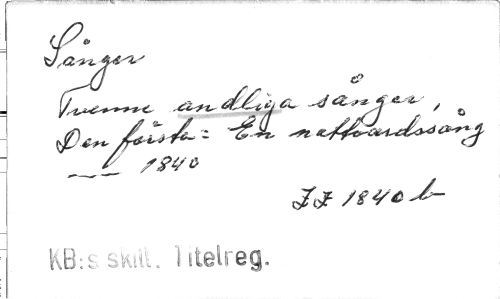 Sånger
Tvenne andliga sånger,
Den första: En nattvardssång
—— 1840
JJ 1840 b
KB:s skill. Titelreg.